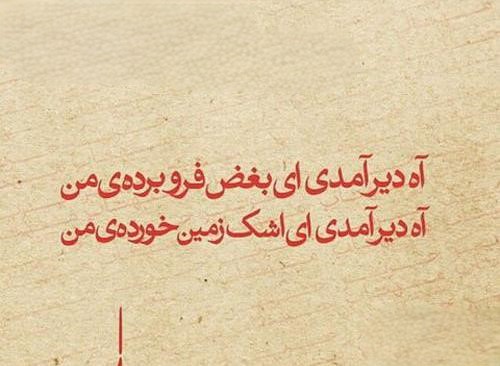 آه دیر آمدی ای بغض فرو برده‌ی من
آه دیر آمدی ای اشک زمین خورده‌ی من